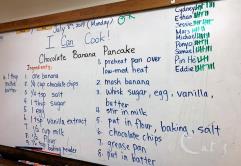 July 8th 2019 (Monday)
I Can Cook!
Chocolate Banana Pancake
Ingredients
1 tbsp butter
1 one banana
2 1/4 cup chocolate chips
3 1/4 tsp salt
4 1 tbsp sugar
5 1 egg
6 1 tsp vanilla extract
7 1/2 cup milk
baking powder
1 preheat pan over low-med heat
2 mash banana
3 whisk sugar, egg, vanilla, butter
4 stir in milk
5 put in flour, baking, salt
6 chocolate chips
7 grease pan
8 put in batter
Cydney
Ethan
Jessie
Mars
Michael
Ponyo
Samuel
Pin Ho
Eddie